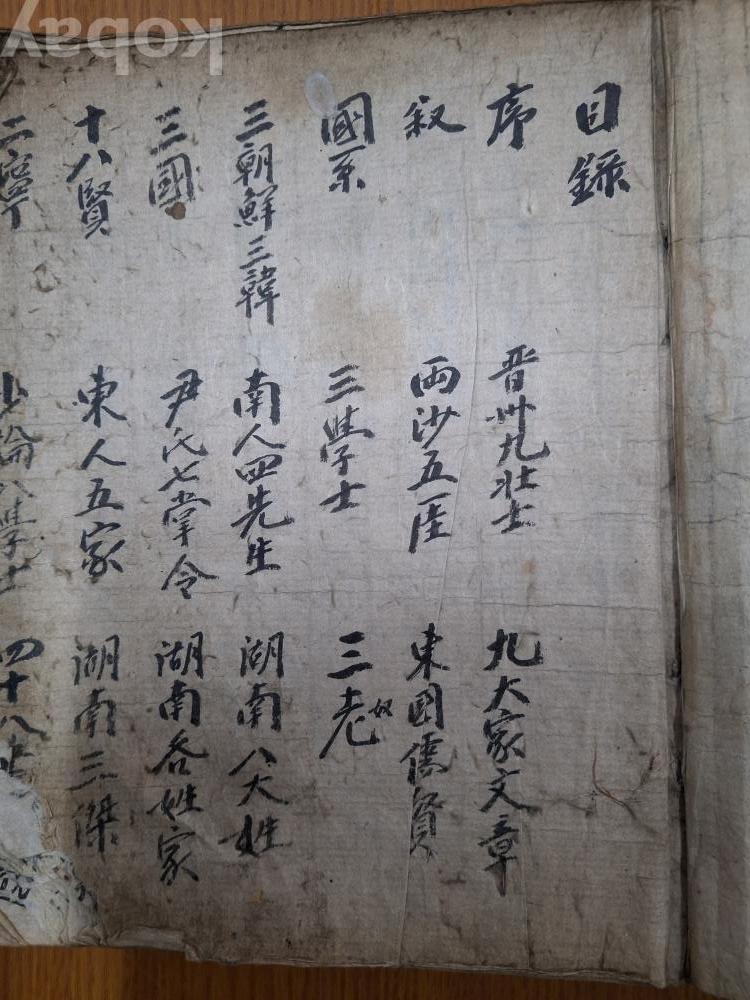 目錄
序 晋州九壯士 九大家文章
叙 両沙五厓 東國儒賢
國系 三学士 三老奴
三朝鮮三韓 南人四先生 湖南八大姓
三國 尹氏七掌令 湖南各姓家
十八賢 東人五家 湖南三傑
二寧 少論八学士 四十八
kobay